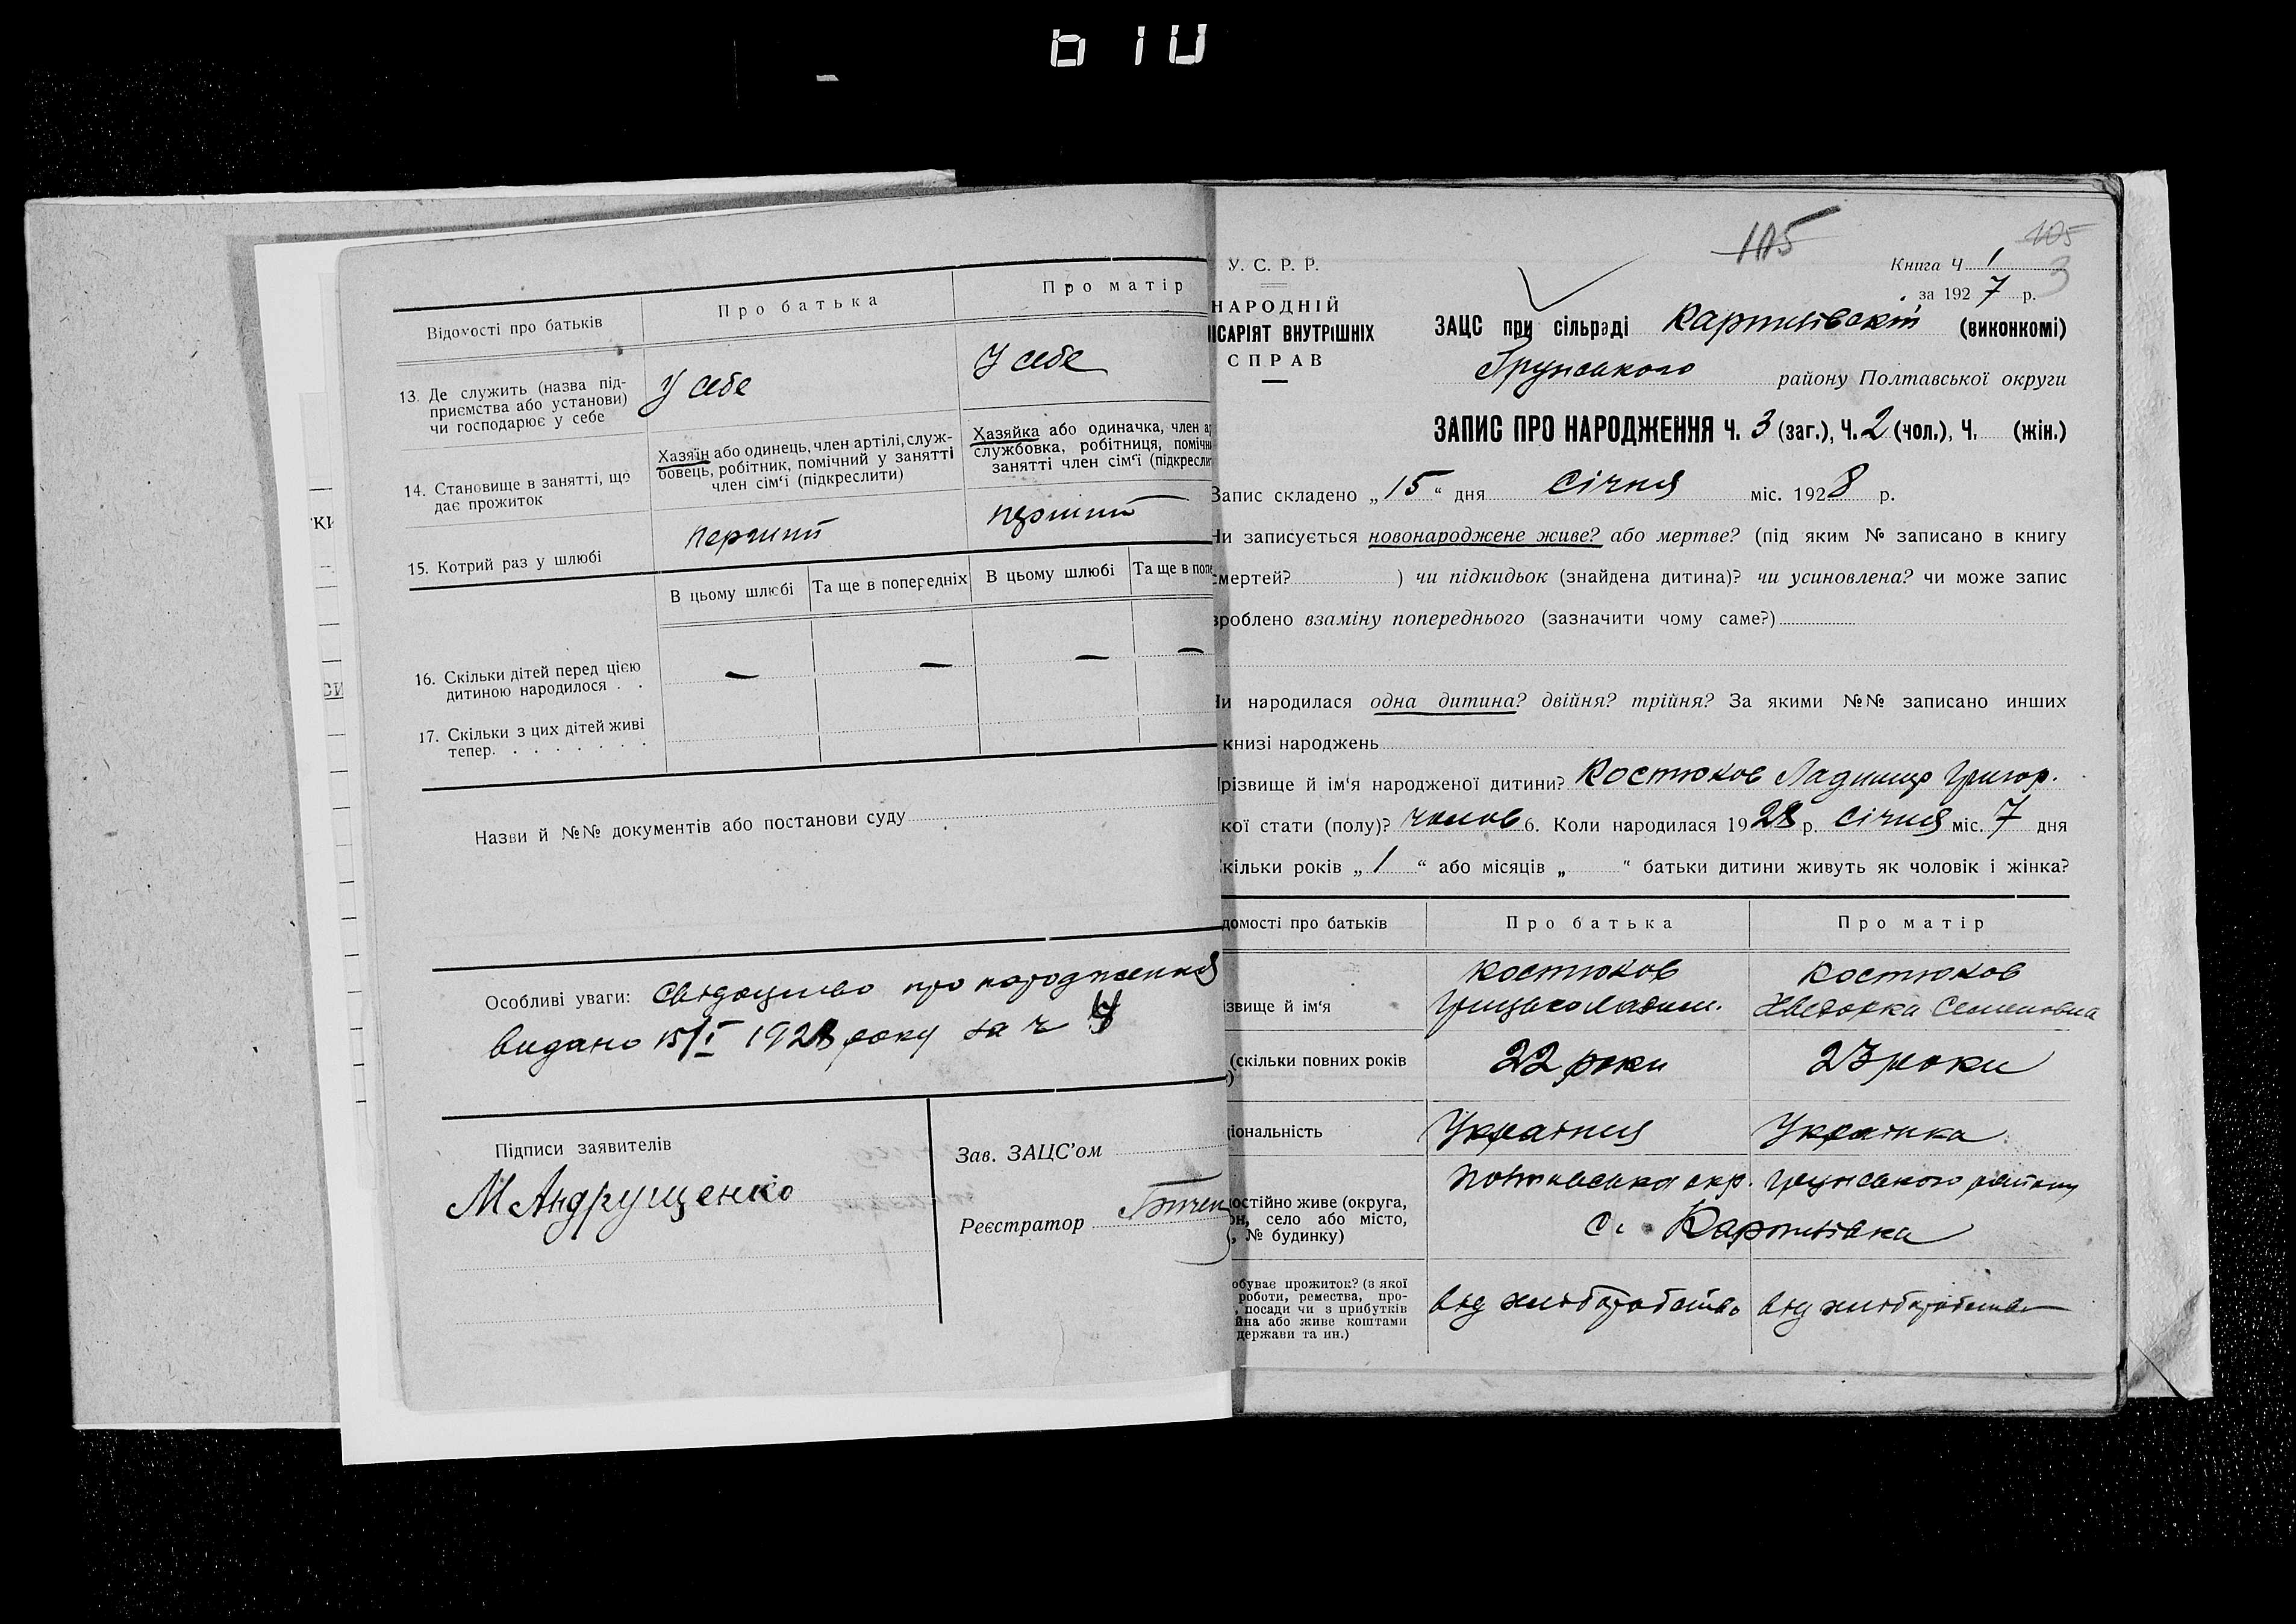 Відомості про батьків
Про батька
Про матір
13. Де служить (назва під-
приємства або установи)
чи господарює у себе
У себе
У себе
14. Становище в занятті, що
дає прожиток
Хазяїн або одинець, член артілі, служ-
бовець, робітник, помічний у занятті
член сім‘ї (підкреслити)
Хазяйка або одиначка, член
службовка, робітниця,
занятті член сім‘ї
15. Котрий раз у шлюбі
перший
перший
В цьому шлюбі
Та ще в попередніх
В цьому шлюбі
Та ще в
16. Скільки дітей перед цією
дитиною народилося . .
—
—
—
—
17. Скільки з цих дітей живі
тепер. . . . . . . .
Назви й №№ документів або постанови суду
Особливі уваги: Свідоцтво про народження
видано 15/I 1928 року за ч
Підписи заявителів
М Андрущенко
Зав. ЗАЦС’ом
Реєстратор
105
105
3
У. С. Р. Р.
НАРОДНІЙ
ВНУТРІШНІХ
СПРАВ
Книга Ч 1
за 1927 р.
ЗАЦС при сільраді (виконкомі)
Грунського району Полтавської округи
ЗАПИС ПРО НАРОДЖЕННЯ Ч. 3 (заг.), Ч. 2 (чол.), Ч. (жін.)
Запис складено „15“ дня Січня міс. 1928 р.
Чи записується новонароджене живе? або мертве? (під яким № записано в книгу
смертей? ) чи підкидьок (знайдена дитина)? чи усиновлена? чи може запис
зроблено взаміну попереднього (зазначити чому саме?)
Чи народилася одна дитина? двійня? трійня? За якими №№ записано инших
книзі народжень
Прізвище й ім‘я народженої дитини? Костюков Григор.
стати (полу)? чолов 6. Коли народилася 1928 р. Січня міс. 7 дня
Скільки років „1“ або місяців „ “ батьки дитини живуть як чоловік і жінка?
про батьків
Про батька
Про матір
й ім‘я
Костюков
Грицько
Костюков
Хведорка Семеновна
(скільки повних років
22 роки
23 роки
Українця
Українка
живе (округа,
село або місто,
№ будинку)
Полтавська окр. Грунського району
с.
прожиток? (з якої
роботи, ремества, про-
посади чи з прибутків
або живе коштами
держави та ин.)
від хліборобства
від хліборобства